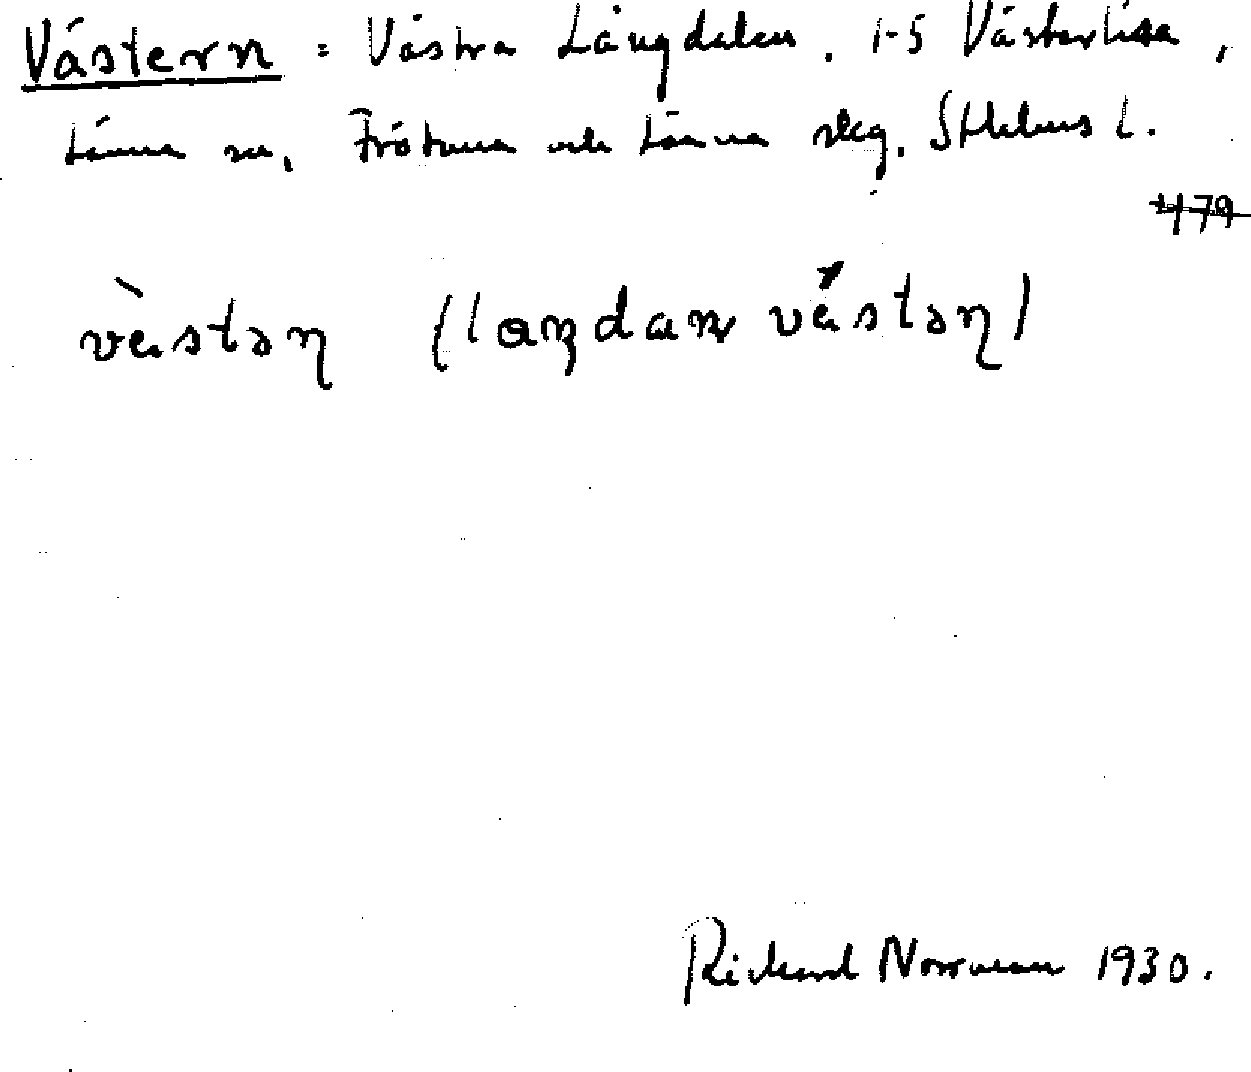 Västern : Västra Långdalen. 1-5 Västerlisa,
Länna sn, Frötuna och Länna skg. Sthlms L.
479
vèstən (landan véstən)
Rickard Norrman 1930.